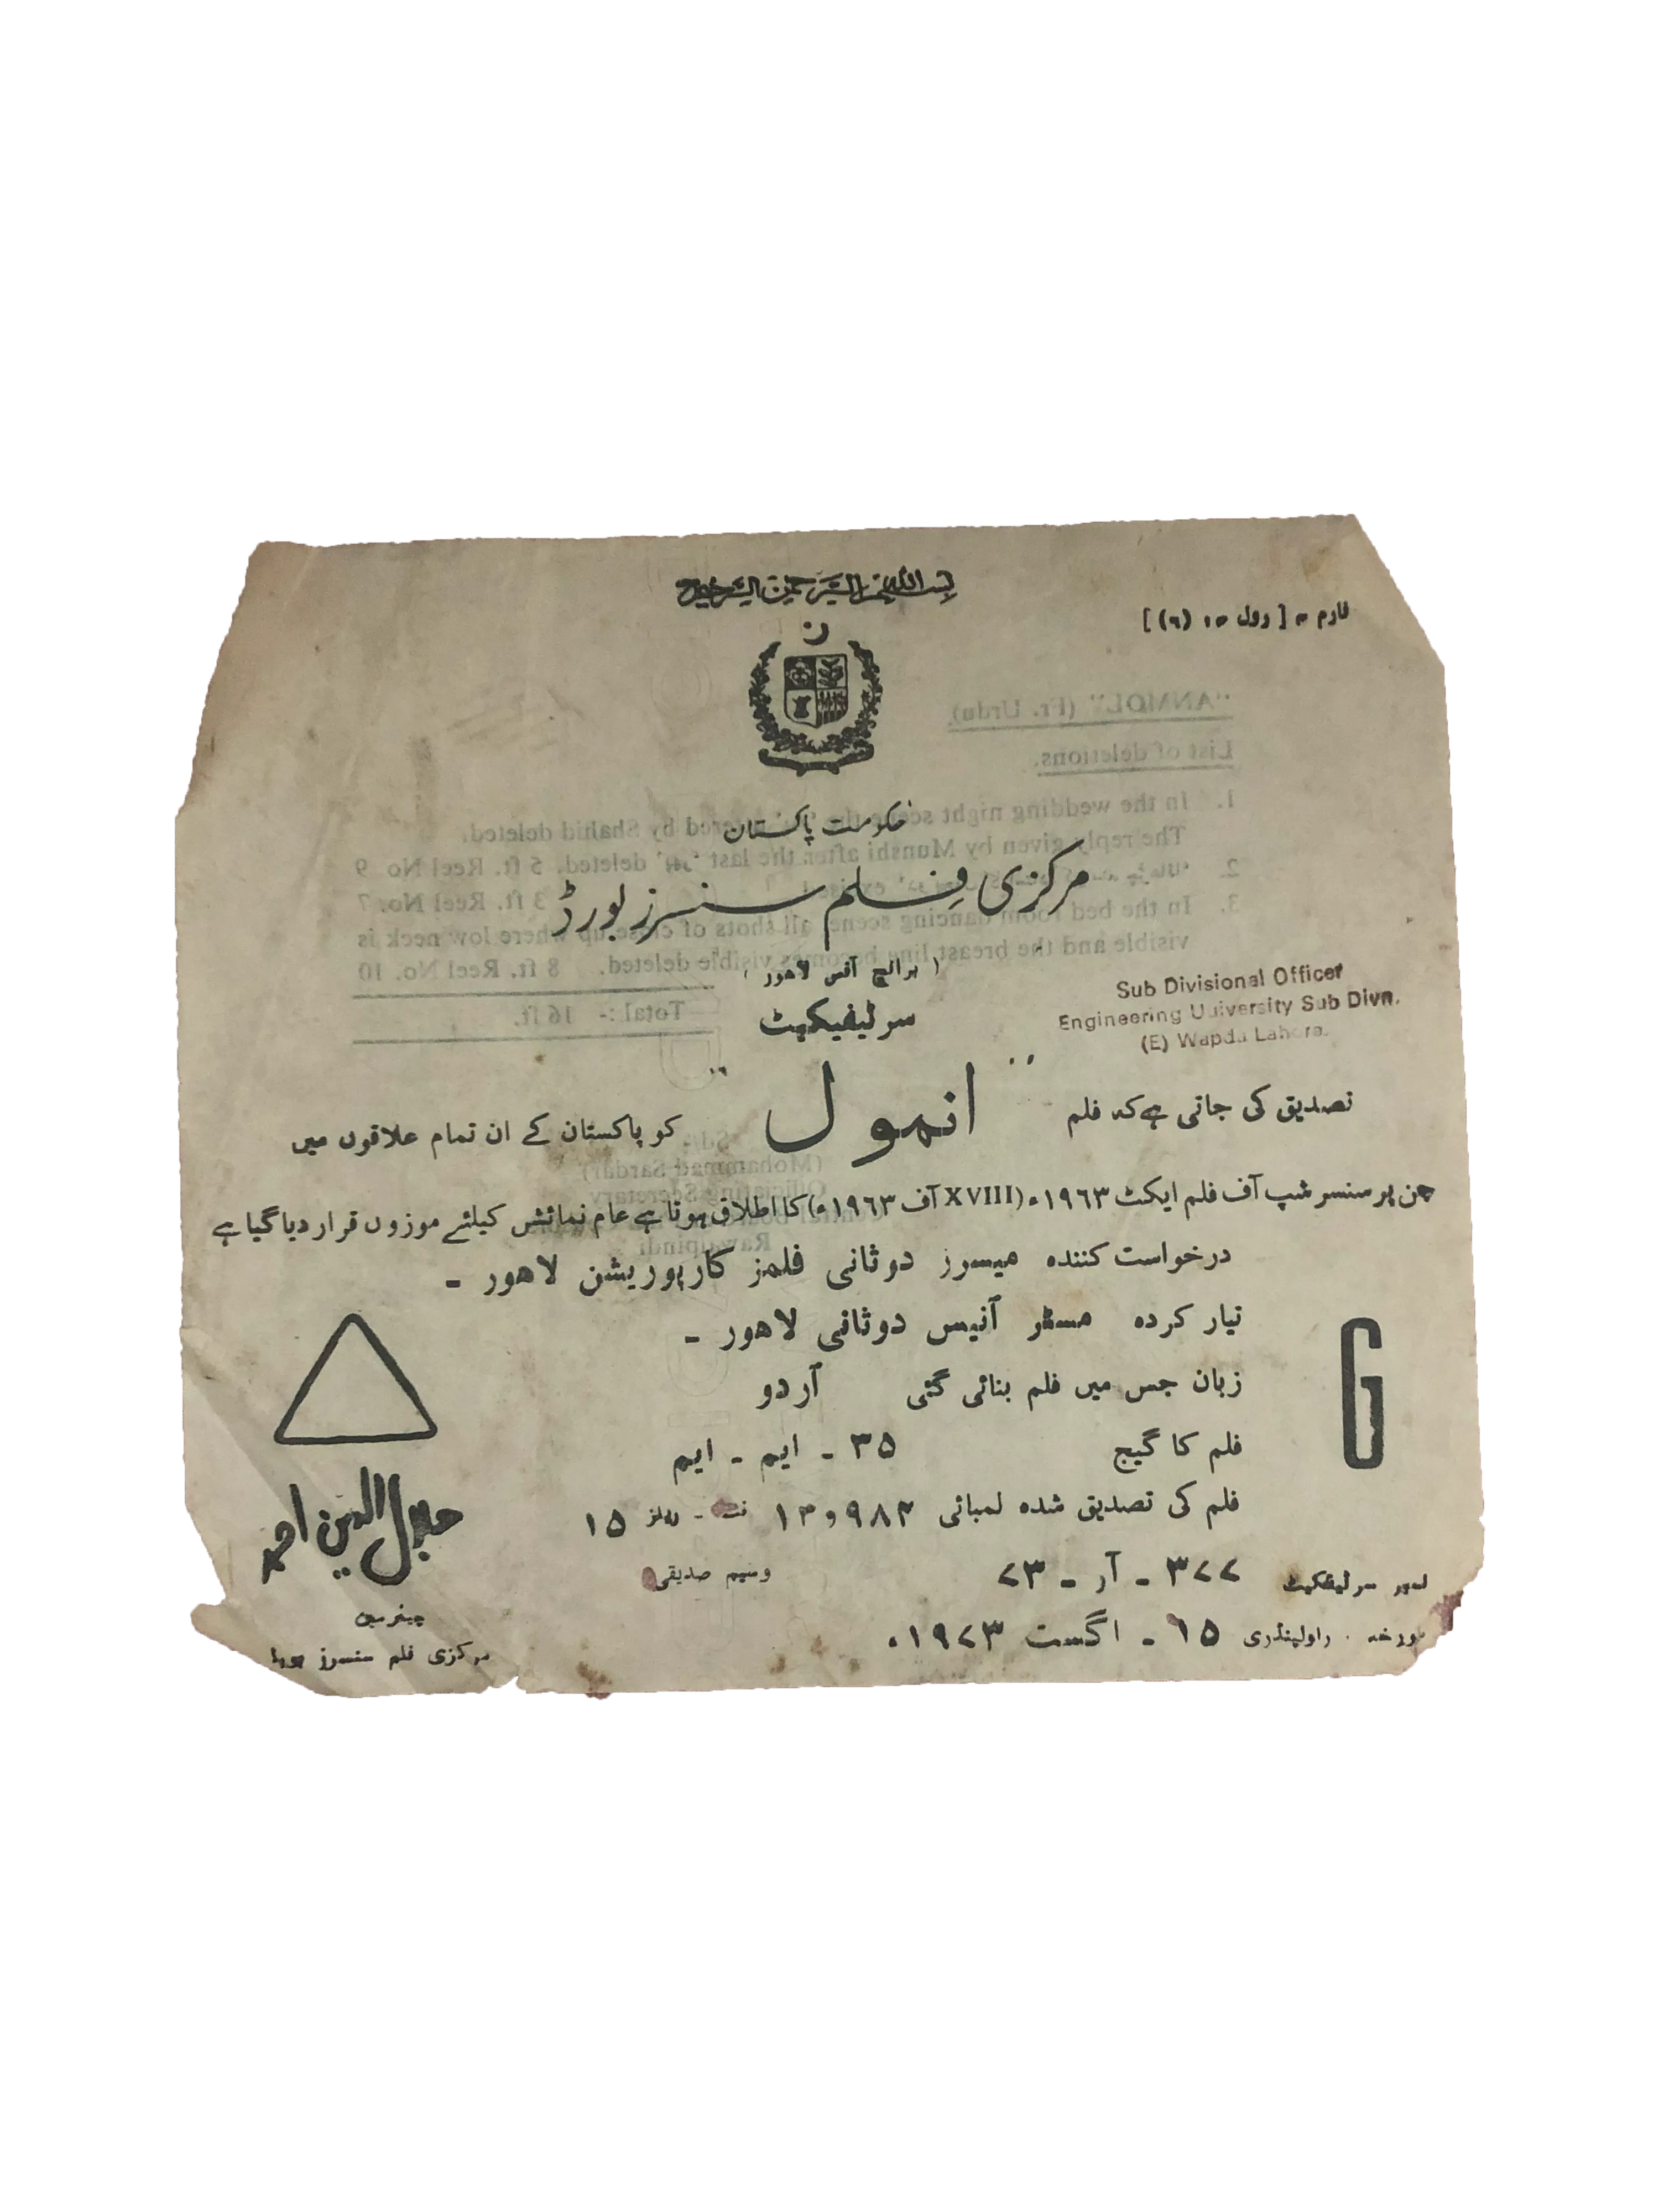 بسم اللہ الرحمن الرحیم
فارم ۴ [ رول ۱۴ (۶) ]
حکومت پاکستان
مرکزی فلم سنسرز بورڈ
( برانچ آفس لاہور )
سرٹیفیکیٹ
Sub Divisional Officer
Engineering University Sub Divn.
(E) Wapda Lahore.
تصدیق کی جاتی ہے کہ فلم " انمول " کو پاکستان کے ان تمام علاقوں میں
جن پر سنسر شپ آف فلم ایکٹ ۱۹۶۳ء (XVIII آف ۱۹۶۳ء) کا اطلاق ہوتا ہے عام نمائش کیلئے موزوں قرار دیا گیا ہے
درخواست کنندہ میسرز دوثانی فلمز کارپوریشن لاہور ۔
تیار کردہ مسٹر آنیس دوثانی لاہور ۔
زبان جس میں فلم بنائی گئی آردو
G
فلم کا گیج ۳۵ ۔ ایم ۔ ایم
فلم کی تصدیق شدہ لمبائی ۱۳و۹۸۴ فٹ ۔ رولز ۱۵
جلال الدین احمد
نمبر سرٹیفکیٹ ۳۷۷ ۔ آر ۔ ۷۳
وسیم صدیقی
چیئرمین
مورخہ . راولپنڈری ۱۵ ۔ اگست ۱۹۷۳ء
مرکزی فلم سنسرز بورڈ
"ANMOL" (Fr. Urdu)
List of deletions.
1. In the wedding night scene the by Shahid deleted.
The reply given by Munshi after the last deleted. 5 ft. Reel No 9
2. 3 ft. Reel No. 7
3. In the bed room dancing scene all shots of close up where low neck is
visible and the breast line becomes visible deleted. 8 ft. Reel No. 10
Total :- 16 ft.
(Mohammad Sardar)
Officiating Secretary
Central Board
Rawalpindi